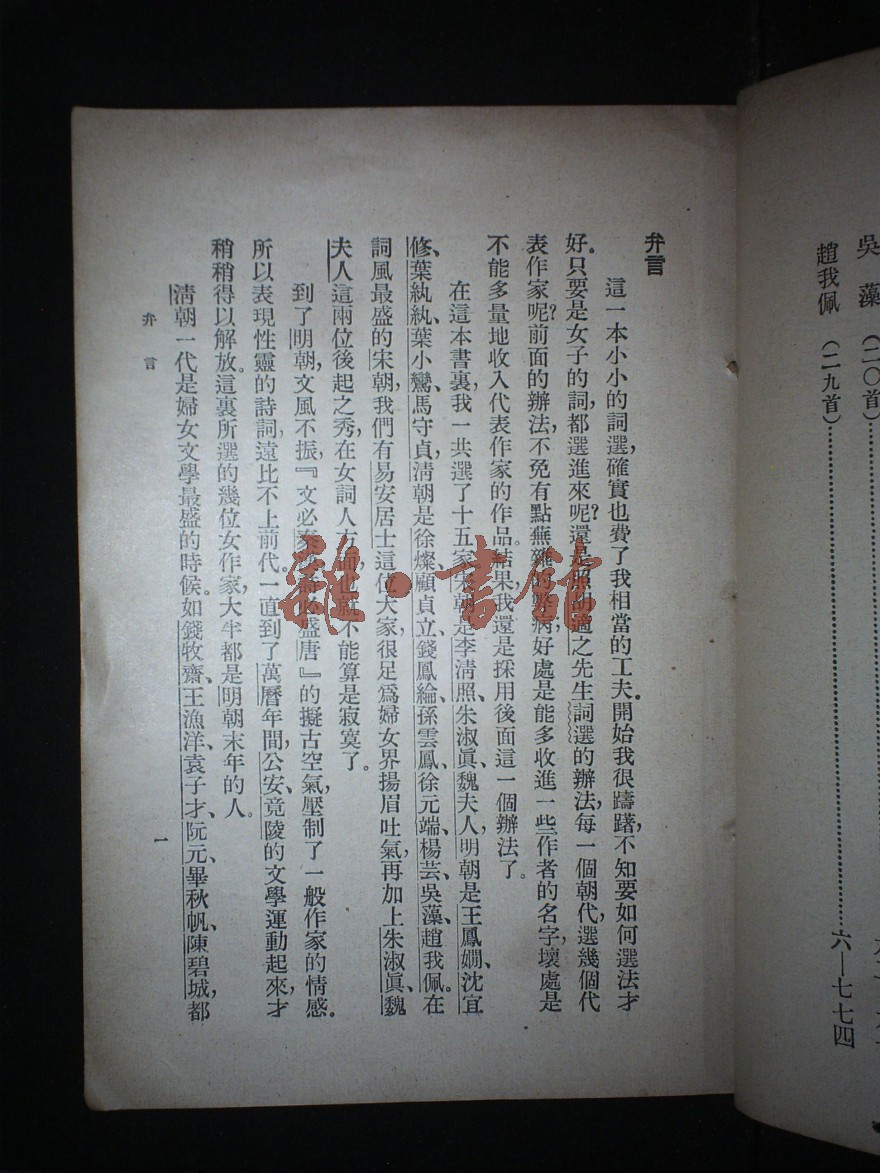 吳藻（二〇首）
趙我佩（二九首）……六—七七四
弁言
這一本小小的詞選，確實也費了我相當的工夫。開始我很躊躇，不知要如何選法才
好。只要是女子的詞都選進來呢？還是照胡適之先生詞選的辦法，每一個朝代，選幾個代
表作家呢？前面的辦法，不免有點蕪雜的弊病，好處是能多收進一些作者的名字，壞處是
不能多量地收入代表作家的作品。結果，我還是採用後面這一個辦法了。
在這本書裏，我一共選了十五家。宋朝是李清照、朱淑眞、魏夫人，明朝是王鳳嫺、沈宜
修、葉紈紈、葉小鸞、馬守貞，清朝是徐燦、顧貞立、錢鳳綸、孫雲鳳、徐元端、楊芸、吳藻、趙我佩。在
詞風最盛的宋朝，我們有易安居士這位大家，很足爲婦女界揚眉吐氣，再加上朱淑眞、魏
夫人這兩位後起之秀，在女詞人方面，也就不能算是寂寞了。
到了明朝，文風不振，『文必秦漢，詩必盛唐』的擬古空氣，壓制了一般作家的情感。
所以表現性靈的詩詞，遠比不上前代。一直到了萬曆年間，公安、竟陵的文學運動起來，才
稍稍得以解放。這裏所選的幾位女作家，大半都是明朝末年的人。
清朝一代是婦女文學最盛的時候。如錢牧齋、王漁洋、袁子才、阮元、畢秋帆、陳碧城，都
弁言
一
雜·書館